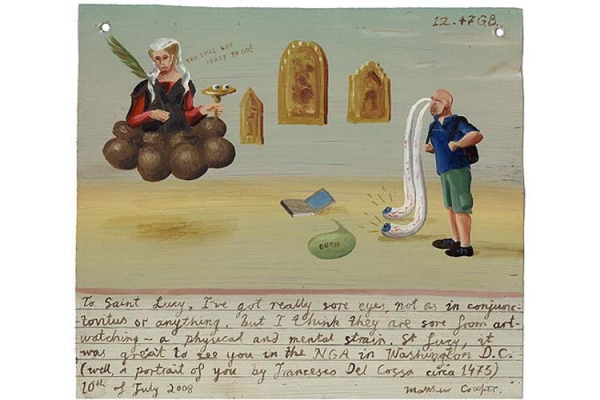 12.47 G.B.
YOU STILL NOT
READY TO GO!
OUCH
To Saint Lucy, I've got really sore eyes, not as in conjunc-
tovitus or anything, but I think they are sore from art-
watching – a physical and mental strain. St Lucy, it
was great to see you in the NGA in Washington D.C.
(well, a portrait of you by Francesco Del Cossa circa 1475)
10th of July 2008
Matthew Couper.